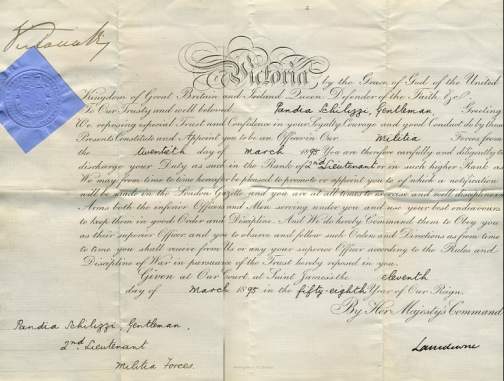 Victoria by the Grace of God of the United
Kingdom of Great Britain and Ireland Queen Defender of the Faith &c.
To Our Trusty and well beloved Pandia Schilizzi, Gentleman, Greeting
We reposing especial Trust and Confidence in your Loyalty Courage and good Conduct do by these
Presents Constitute and Appoint you to be an Officer in Our Militia Forces from
the twentieth day of March 1895 You are therefore carefully and diligently to
discharge your Duty as such in the Rank of 2nd Lieutenant or in such higher Rank as
We may from time to time hereafter be pleased to promote or appoint you to of which a notification
will be made in the London Gazette and you are at all times to exercise and well discipline in
Arms both the inferior Officers and Men serving under you and use your best endeavours
to keep them in good Order and Discipline. And We do hereby Command them to Obey you
as their superior Officer and you to observe and follow such Orders and Directions as from time
to time you shall receive from Us or any your superior Officer according to the Rules and
Discipline of War in pursuance of the Trust hereby reposed in you.
Given at Our Court at Saint James's the eleventh
day of March 1895 in the fifty-eighth Year of Our Reign.
By Her Majesty's Command
Pandia Schilizzi, Gentleman,
2nd Lieutenant
Militia Forces
Lansdowne